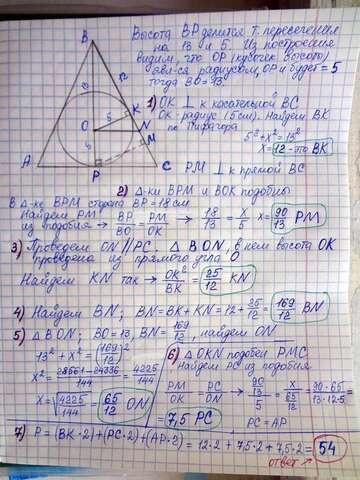 Высота BP делится т. пересечения
на 13 и 5. Из построения
видим, что OP (кусочек высоты)
явл-ся радиусом, OP и будет = 5
тогда BO = 13.
1) OK ⊥ к касательной BC
OK - радиус (5см). Найдем BK
по Пифагора
5² + x² = 13²
x = 12 - это BK
PM ⊥ к прямой BC
B
O
5
K
N
M
A
P
C
2) Δ-ки BPM и BOK подобны
В Δ-ке BPM сторона BP = 18 см
Найдем PM
из подобия → BP/BO = PM/OK → 18/13 = x/5 x = 90/13 PM
3) Проведем ON || PC. Δ BON, в нем высота OK
проведена из прямого угла O
Найдем KN так → OK²/BK = 25/12 KN
4) Найдем BN; BN = BK + KN = 12 + 25/12 = 169/12 BN
5) Δ BON; BO = 13, BN = 169/12, найдем ON
13² + x² = (169/12)²
x² = 28561 - 24336/144 = 4225/144
x = √4225/144 = 65/12 ON
6) Δ OKN подобен PMC
найдем PC из подобия
PM/OK = PC/ON → 90/13/5 = x/65/12 = 90·65/13·12·5
= 7,5 PC
PC = AP
7) P = (BK·2) + (PC·2) + (AP·2) = 12·2 + 7,5·2 + 7,5·2 = 54
ответ